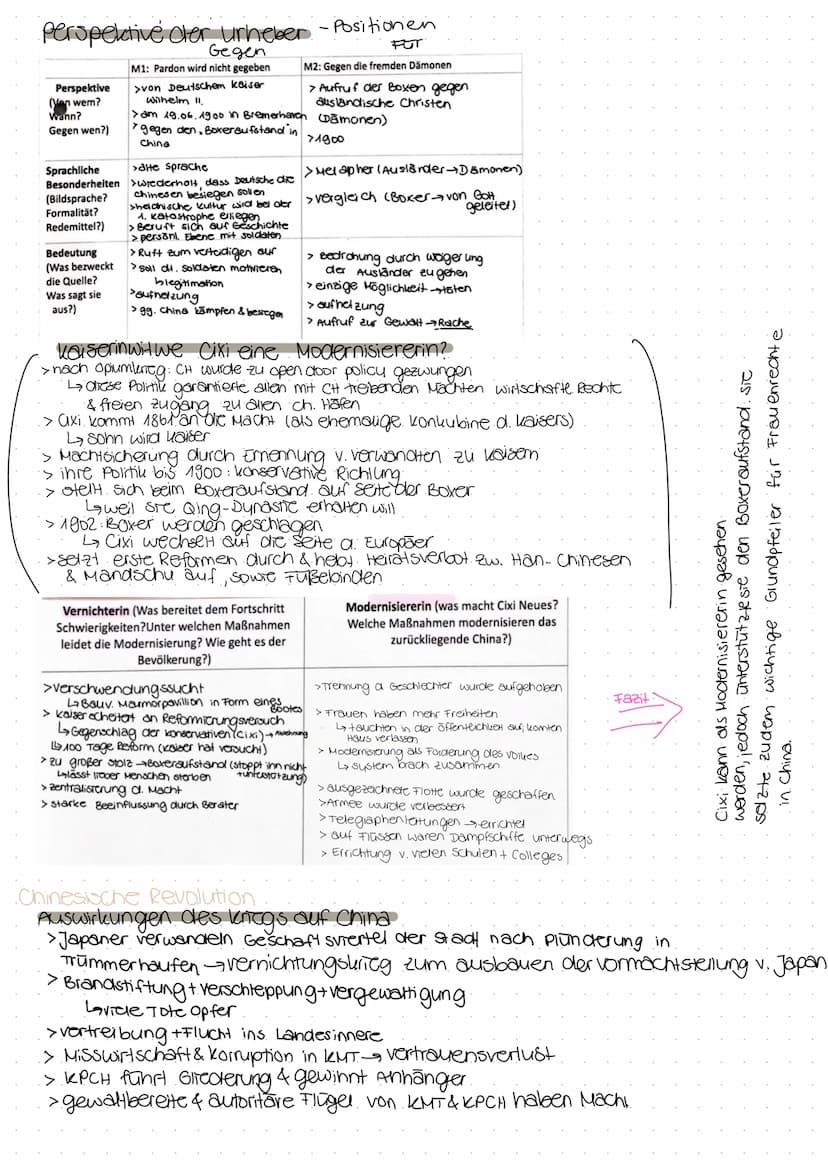 Perspektive der Urheber - Positionen
Gegen FÜR
M1: Pardon wird nicht gegeben
M2: Gegen die fremden Dämonen
Perspektive
(Von wem?
Wann?
Gegen wen?)
>von Deutschem Kaiser
Wilhelm II.
> am 19.06.1900 in Bremerhaven
> gegen den „Boxeraufstand" in
China
> Aufruf der Boxen gegen
ausländische Christen
(Dämonen)
>1900
Sprachliche
Besonderheiten
(Bildsprache?
Formalität?
Redemittel?)
>alte Sprache
>wiederholt, dass Deutsche die
Chinesen besiegen sollen
>heidnische Kultur wird bei der
1. Katastrophe erliegen
> Beruft sich auf Geschichte
> persönl. Ebene mit Soldaten
>Metapher (Ausländer→Dämonen)
>vergleich (Boxer→von Gott
geleitet)
Bedeutung
(Was bezweckt
die Quelle?
Was sagt sie
aus?)
> Ruft zum verteidigen auf
> soll dt. Soldaten motivieren
↳legitimation
>aufhetzung
> gg. China kämpfen & besiegen
> Bedrohung durch weigerung
der Ausländer zu gehen
> einzige Möglichkeit →töten
> aufhetzung
> Aufruf zur Gewalt →Rache
Kaiserinwitwe Cixi eine Modernisiererin?
>nach Opiumkrieg: CH wurde zu open door policy gezwungen
↳ diese Politik garantierte allen mit CH treibenden Mächten wirtschaftl Rechte
& freien Zugang zu allen ch. Häfen
> Cixi kommt 1861 an die Macht (als ehemalige Konkubine d. Kaisers)
↳ Sohn wird Kaiser
> Machtsicherung durch Ernennung v. Verwandten zu Kaisern
> ihre Politik bis 1900: konservative Richtung
> stellt sich beim Boxeraufstand auf Seite der Boxer
↳weil sie Qing-Dynastie erhalten will
> 1902: Boxer werden geschlagen
↳ Cixi wechselt auf die Seite d. Europäer
>setzt erste Reformen durch & hebt Heiratsverbot zw. Han-Chinesen
& Mandschu auf, sowie Füßebinden
Vernichterin (Was bereitet dem Fortschritt
Schwierigkeiten?Unter welchen Maßnahmen
leidet die Modernisierung? Wie geht es der
Bevölkerung?)
Modernisiererin (was macht Cixi Neues?
Welche Maßnahmen modernisieren das
zurückliegende China?)
>Verschwendungssucht
↳ Bau v. Marmorpavillion in Form eines Bootes
> Kaiser scheitert an Reformierungsversuch
↳Gegenschlag der konservativen (Cixi)→Abdrohung
↳100 Tage Reform (Kaiser hat versucht)
> zu großer Stolz →Boxeraufstand (stoppt ihn nicht
↳lässt lieber Menschen sterben +unterstützung)
> zentralisierung d. Macht
> starke Beeinflussung durch Berater
>Trennung d Geschlechter wurde aufgehoben
> Frauen haben mehr Freiheiten
↳ tauchten in der öffentlichkeit auf, konnten
Haus verlassen
> Modernisierung als Forderung des Volkes
↳ System brach zusammen
>ausgezeichnete Flotte wurde geschaffen
>Armee wurde verbessert
>Telegraphenleitungen →errichtet
> auf Flüssen waren Dampfschiffe unterwegs
> Errichtung v. vielen Schulen + Colleges
Fazit
Cixi kann als Modernisiererin gesehen
werden, jedoch unterstützte sie den Boxeraufstand. sie
setzte zudem wichtige Grundpfeiler für Frauenrechte
in China.
Chinesische Revolution
Auswirkungen des Kriegs auf China
>Japaner verwandeln Geschäftsviertel der Stadt nach Plünderung in
Trümmerhaufen →vernichtungskrieg zum ausbauen der Vormachtstellung v. Japan
> Brandstiftung + Verschleppung+vergewaltigung
↳viele Tote Opfer
>vertreibung +Flucht ins Landesinnere
> Misswirtschaft & Korruption in KMT→ Vertrauensverlust
> KPCH führt Gliederung & gewinnt Anhänger
>gewaltbereite & autoritäre Flügel von KMT & KPCH haben Macht